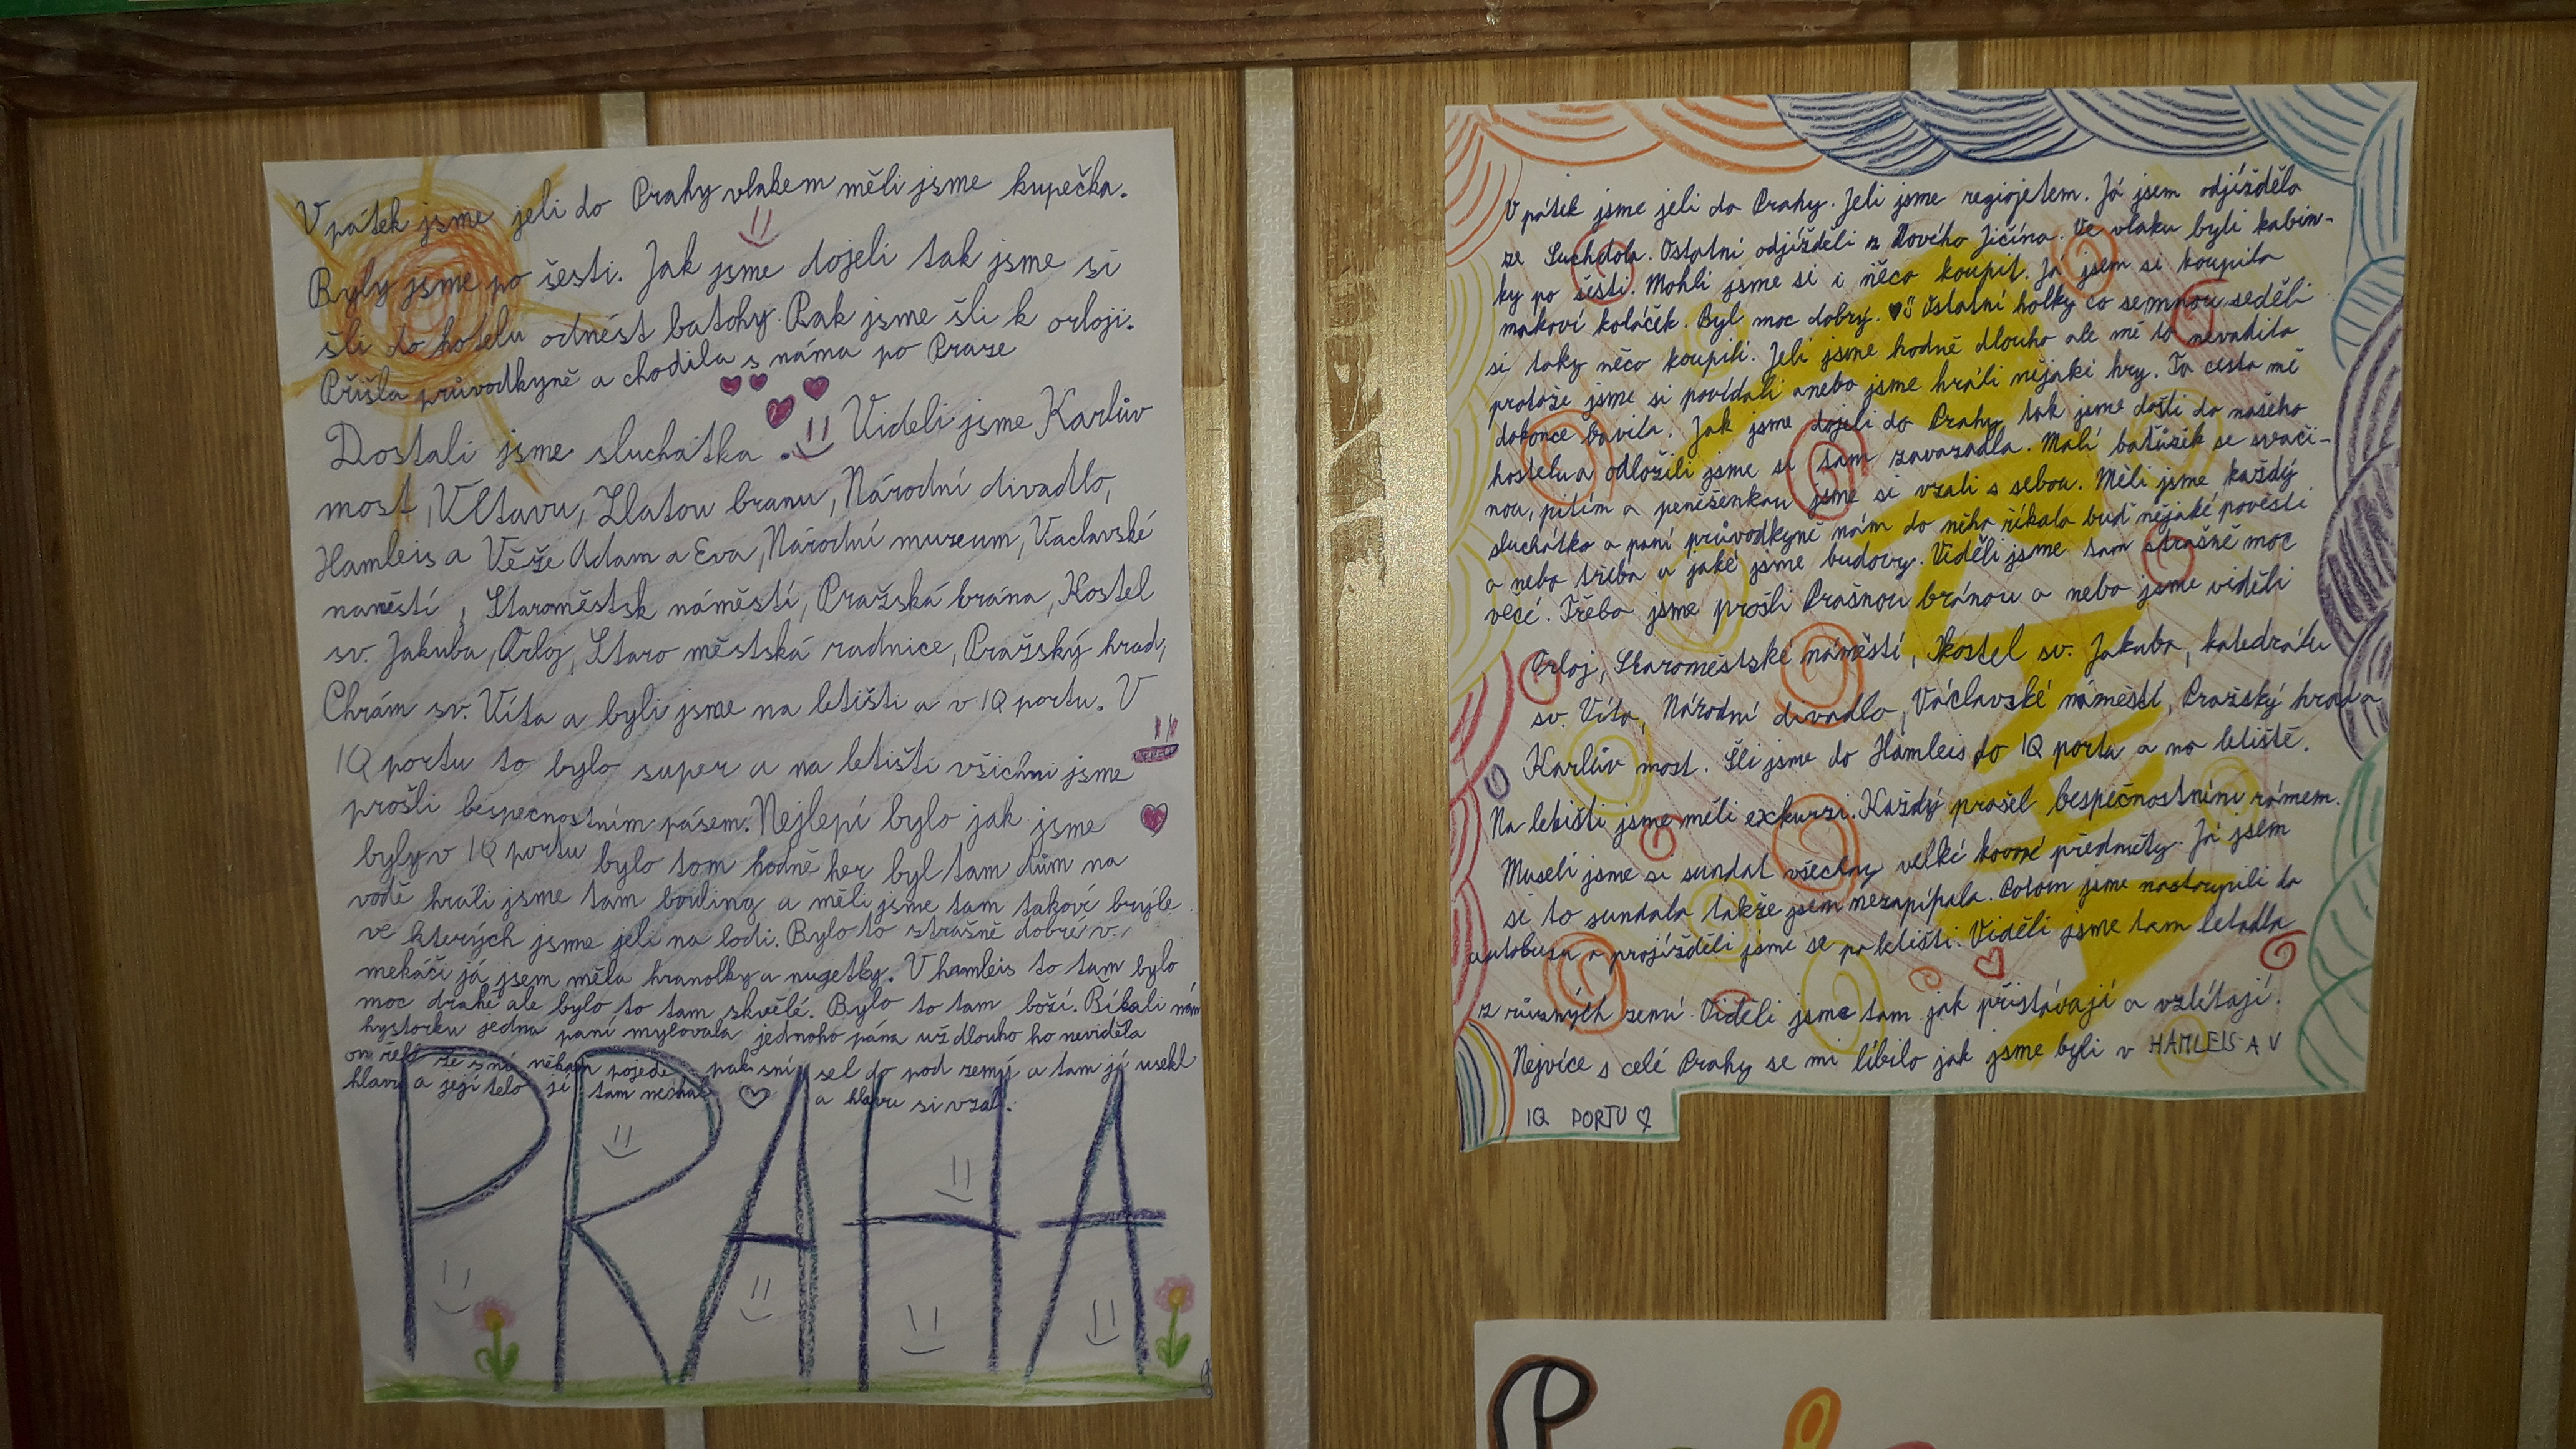 V pátek jsme jeli do Prahy vlakem měli jsme kupečka.
Byly jsme po šesti. Jak jsme dojeli tak jsme si
šli do hotelu odnést batohy. Pak jsme šli k orloji.
Přišla průvodkyně a chodila s náma po Praze
Dostali jsme sluchatka. Videli jsme Karlův
most, Vltavu, Zlatou branu, Národní divadlo,
Hamleis a Věže Adam a Eva, Národní muzeum, Vaclavské
naměstí, Staroměstsk náměstí, Pražská brána, Kostel
sv. Jakuba, Orloj, Staro městská radnice, Pražský hrad,
Chrám sv. Víta a byli jsme na letišti a v IQ portu. V
IQ portu to bylo super a na letišti všichni jsme
prošli bespecnostním pásem. Nejlepí bylo jak jsme
byly v IQ portu bylo tom hodně her byl tam dům na
vodě hráli jsme tam bouling a měli jsme tam takové brýle
ve kterých jsme jeli na lodi. Bylo to strašně dobré v
mekáči já jsem měla hranolky a nugetky. V hamleis to tam bylo
moc drahé ale bylo to tam skvělé. Bylo to tam boží. Říkali nám
hystorku jedna paní mylovala jednoho pána už dlouho ho neviděla
on řekl že sní někam pojede pak sní sel do pod zemý a tam jí usekl
hlavu a její tělo si tam nechal a hlavu si vzal.
PRAHA
V pátek jsme jeli do Prahy. Jeli jsme regiojetem. Já jsem odjížděla
ze Suchdola. Ostatní odjížděli z Nového Jičína. Ve vlaku byli kabin-
ky po šesti. Mohli jsme si i něco koupit. Já jsem si koupila
makoví koláček. Byl moc dobrý. Ostatní holky co semnou seděli
si taky něco koupili. Jeli jsme hodně dlouho ale mě to nevadilo
protože jsme si povídali anebo jsme hráli nějaké hry. Ta cesta mě
dokonce bavila. Jak jsme dojeli do Prahy, tak jsme došli do našeho
hostelu a odložili jsme si tam zavazadla. Malí batůžek se svači-
nou, pitím a peněšenkou jsme si vzali s sebou. Měli jsme každý
sluchátko a paní průvodkyně nám do něho říkala buď nějaké pověsti
a nebo třeba u jaké jsme budovy. Viděli jsme tam strašně moc
věcí. Třeba jsme prošli Prašnou bránou a nebo jsme viděli
Orloj, Staroměstské náměstí, Kostel sv. Jakuba, katedrálu
sv. Víta, Národní divadlo, Václavské náměstí, Pražský hrad a
Karlův most. Šli jsme do Hamleis do IQ portu a na letiště.
Na letišti jsme měli exkurzi. Každý prošel bespečnostním rámem.
Museli jsme si sundat všechny velké kovové předměty. Já jsem
si to sundala takže jsem nezapípala. Potom jsme nastoupili do
autobusu a projížděli jsme se po letišti. Viděli jsme tam letadla
z různých zemí. Viděli jsme tam jak přistávají a vzlétají.
Nejvíce s celé Prahy se mi líbilo jak jsme byli v HAMLEIS A V
IQ PORTU
P